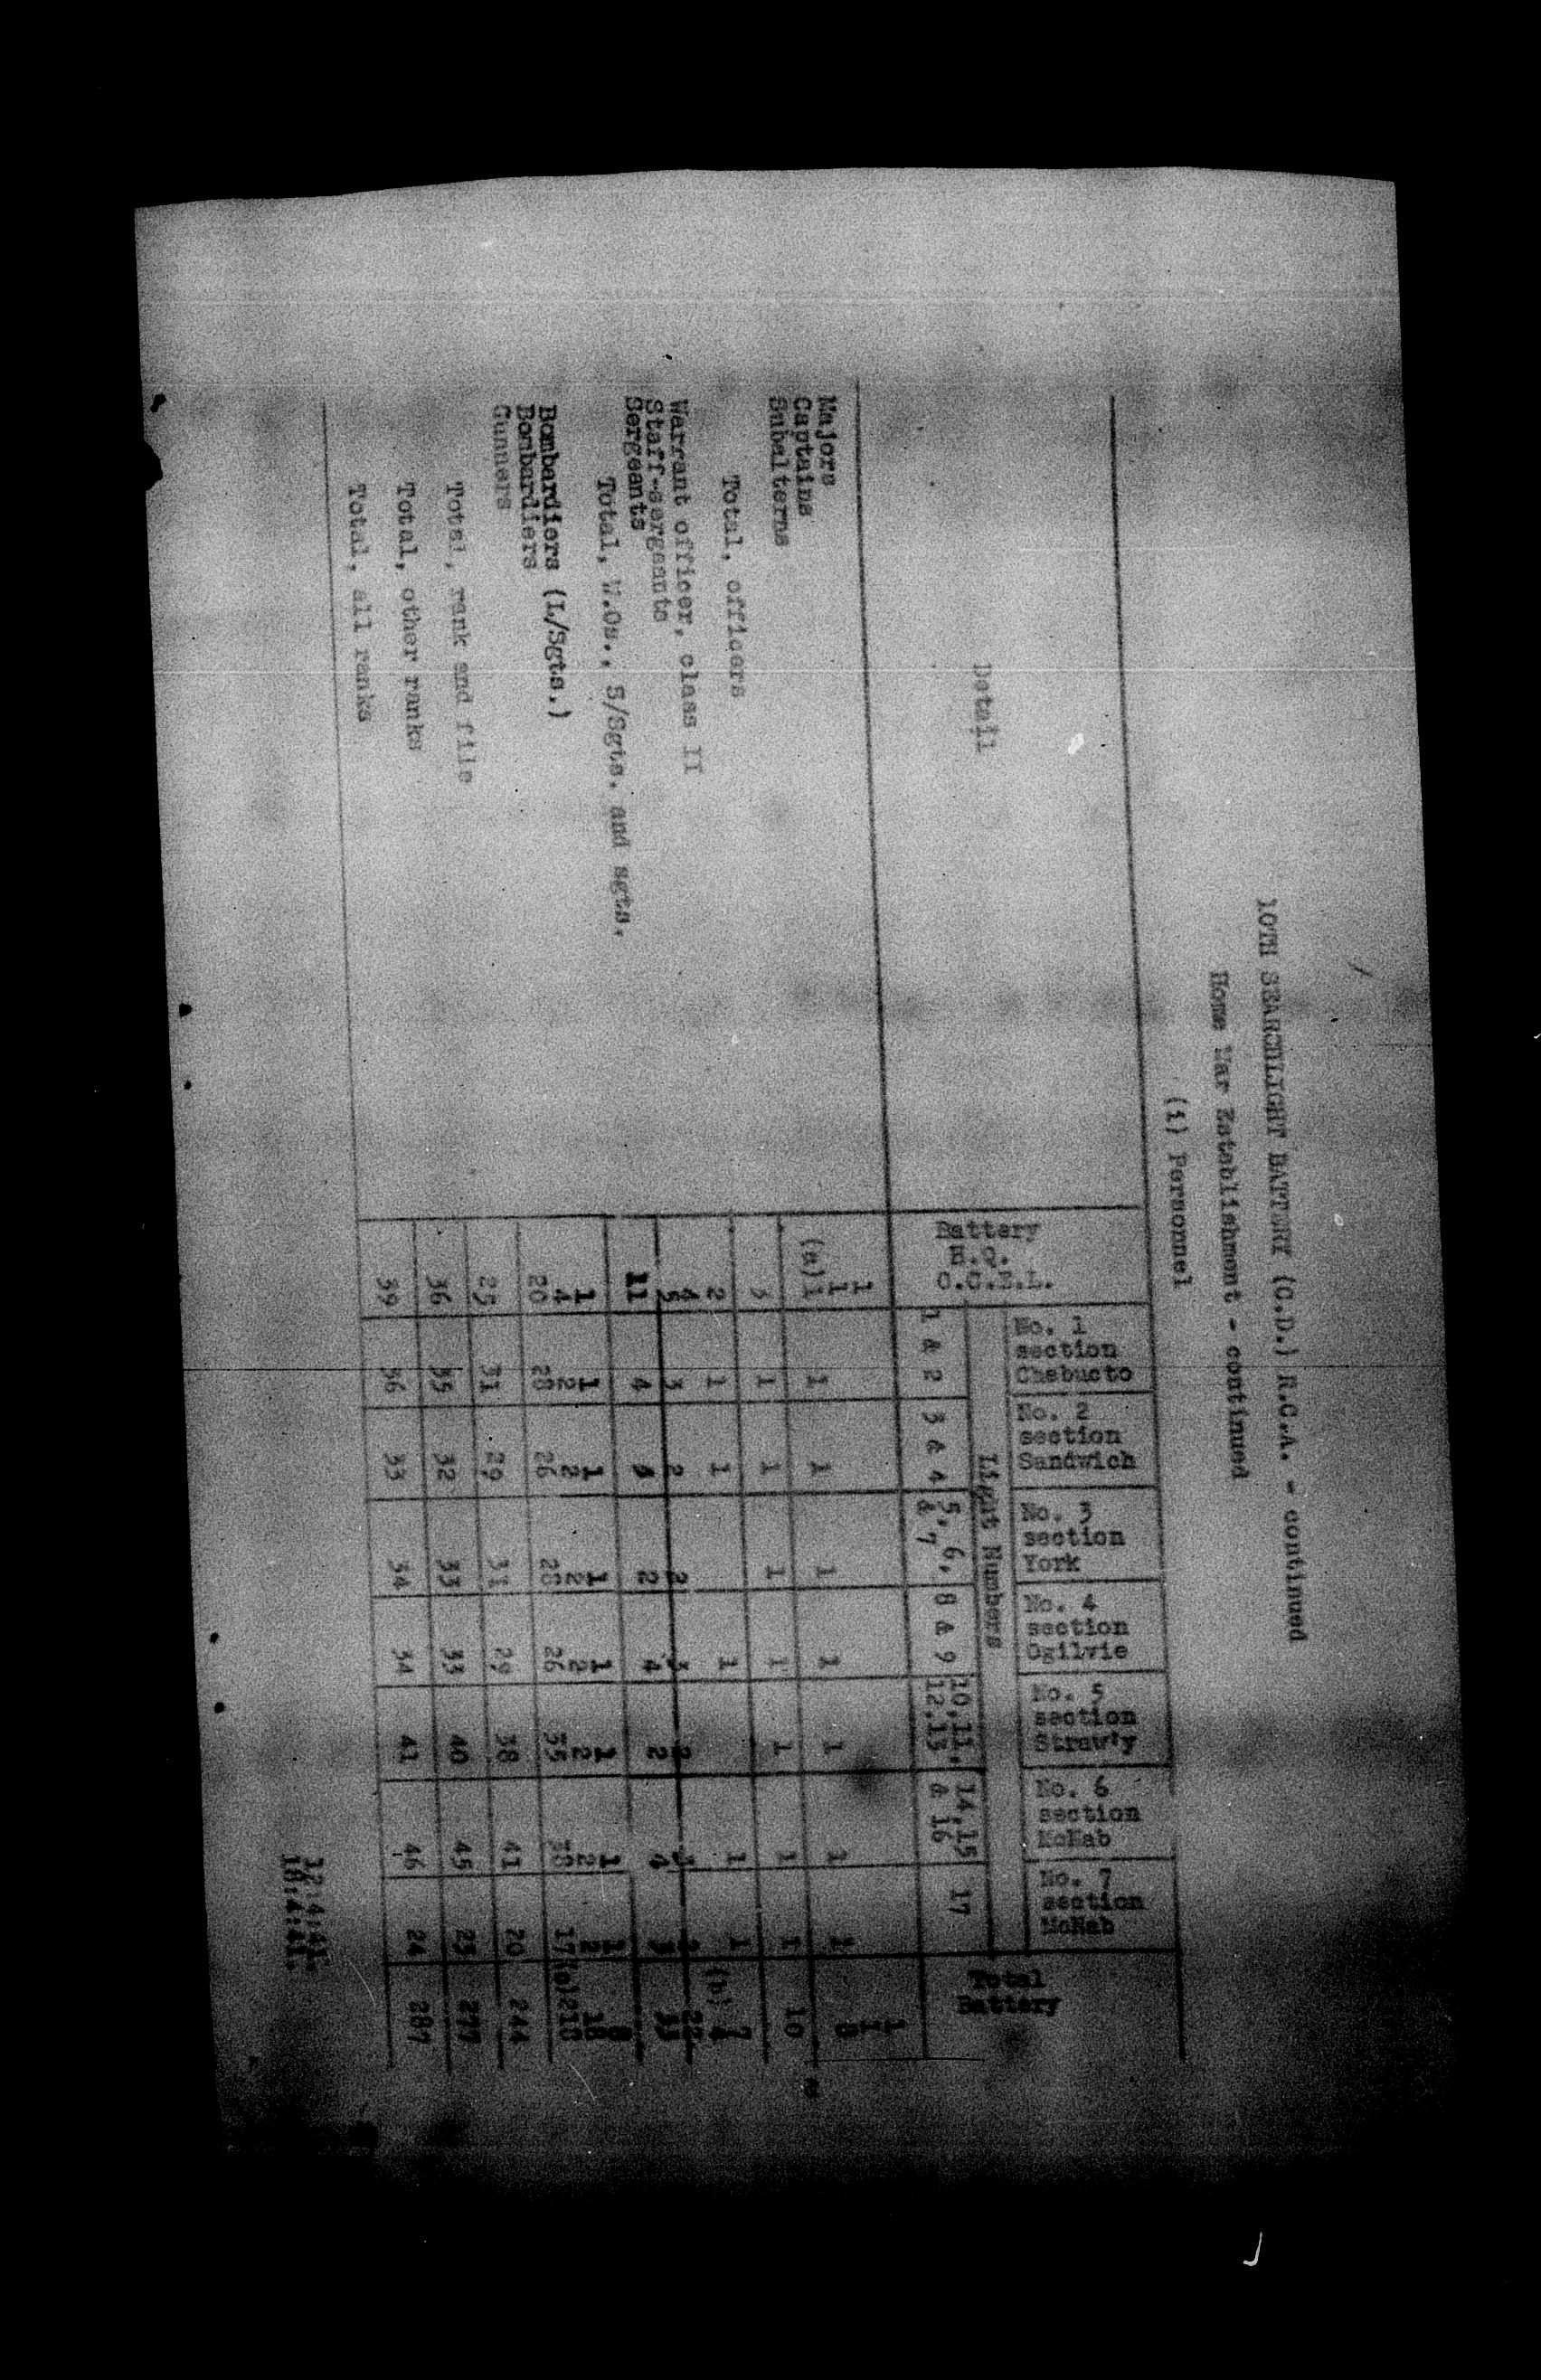 10TH SEARCHLIGHT BATTERY (C.D.) R.C.A. - continued
Home War Establishment - continued
(i) Personnel
Detail
Battery H.Q. O.C.E.L.
No. 1 section Chebucto
No. 2 section Sandwich
No. 3 section York
No. 4 section Ogilvie
No. 5 section Strawb'y
No. 6 section McNab
No. 7 section McNab
Total Battery
Light Numbers
1 & 2 3 & 4 5, 6, & 7 8 & 9 10,11, 12,13 14,15 & 16 17
Majors 1 1
Captains 1 1
Subalterns (a)1 1 1 1 1 1 1 1 8
Total, officers 3 1 1 1 1 1 1 1 10
Warrant officer, class II 2
Staff-sergeants 4 1 1 1 1 1
Sergeants 5 3 2 2 3 2 3
Total, W.Os., S/Sgts. and sgts. 11 4 2 4 2 4 33
Bombardiers (L/Sgts.) 1 1 1 1 1 1 1 1 8
Bombardiers 4 2 2 2 2 2 2 2 18
Gunners 20 28 26 28 26 35 38 17 218
Total, rank and file 25 31 29 31 29 38 41 20 244
Total, other ranks 36 35 32 33 33 40 45 23 277
Total, all ranks 39 36 33 34 34 41 46 24 287
12:4:41.
18:4:41.